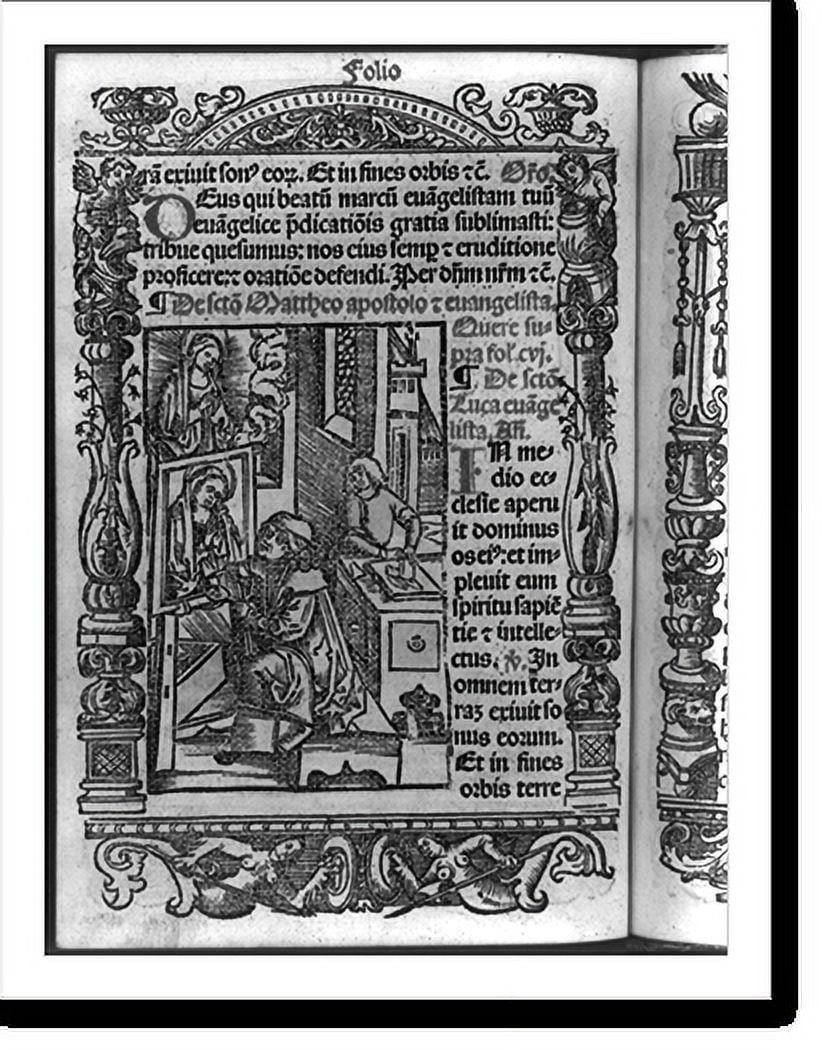 Folio
rā exiuit sonꝰ eoꝝ. Et in fines orbis ⁊c̄. Oŕo.
DEus qui beatū marcū euāgelistam tuū
euāgelice p̄dicatiōis gratia sublimasti:
tribue quesumus: nos eius semꝑ ⁊ eruditione
proficere: ⁊ oratiōe defendi. Per dn̄m nr̄m ⁊c̄.
¶ De sctō Mattheo apostolo ⁊ euangelista.
Quere su-
pra fol. cvj.
¶ De sctō
Luca euāge
lista. Añ.
IN me-
dio ec-
clesie aperu
it dominus
os eiꝰ: et im-
pleuit eum
spiritu sapiē
tie ⁊ intelle-
ctus. ℣. In
omnem ter-
raʒ exiuit so
nus eorum.
Et in fines
orbis terre